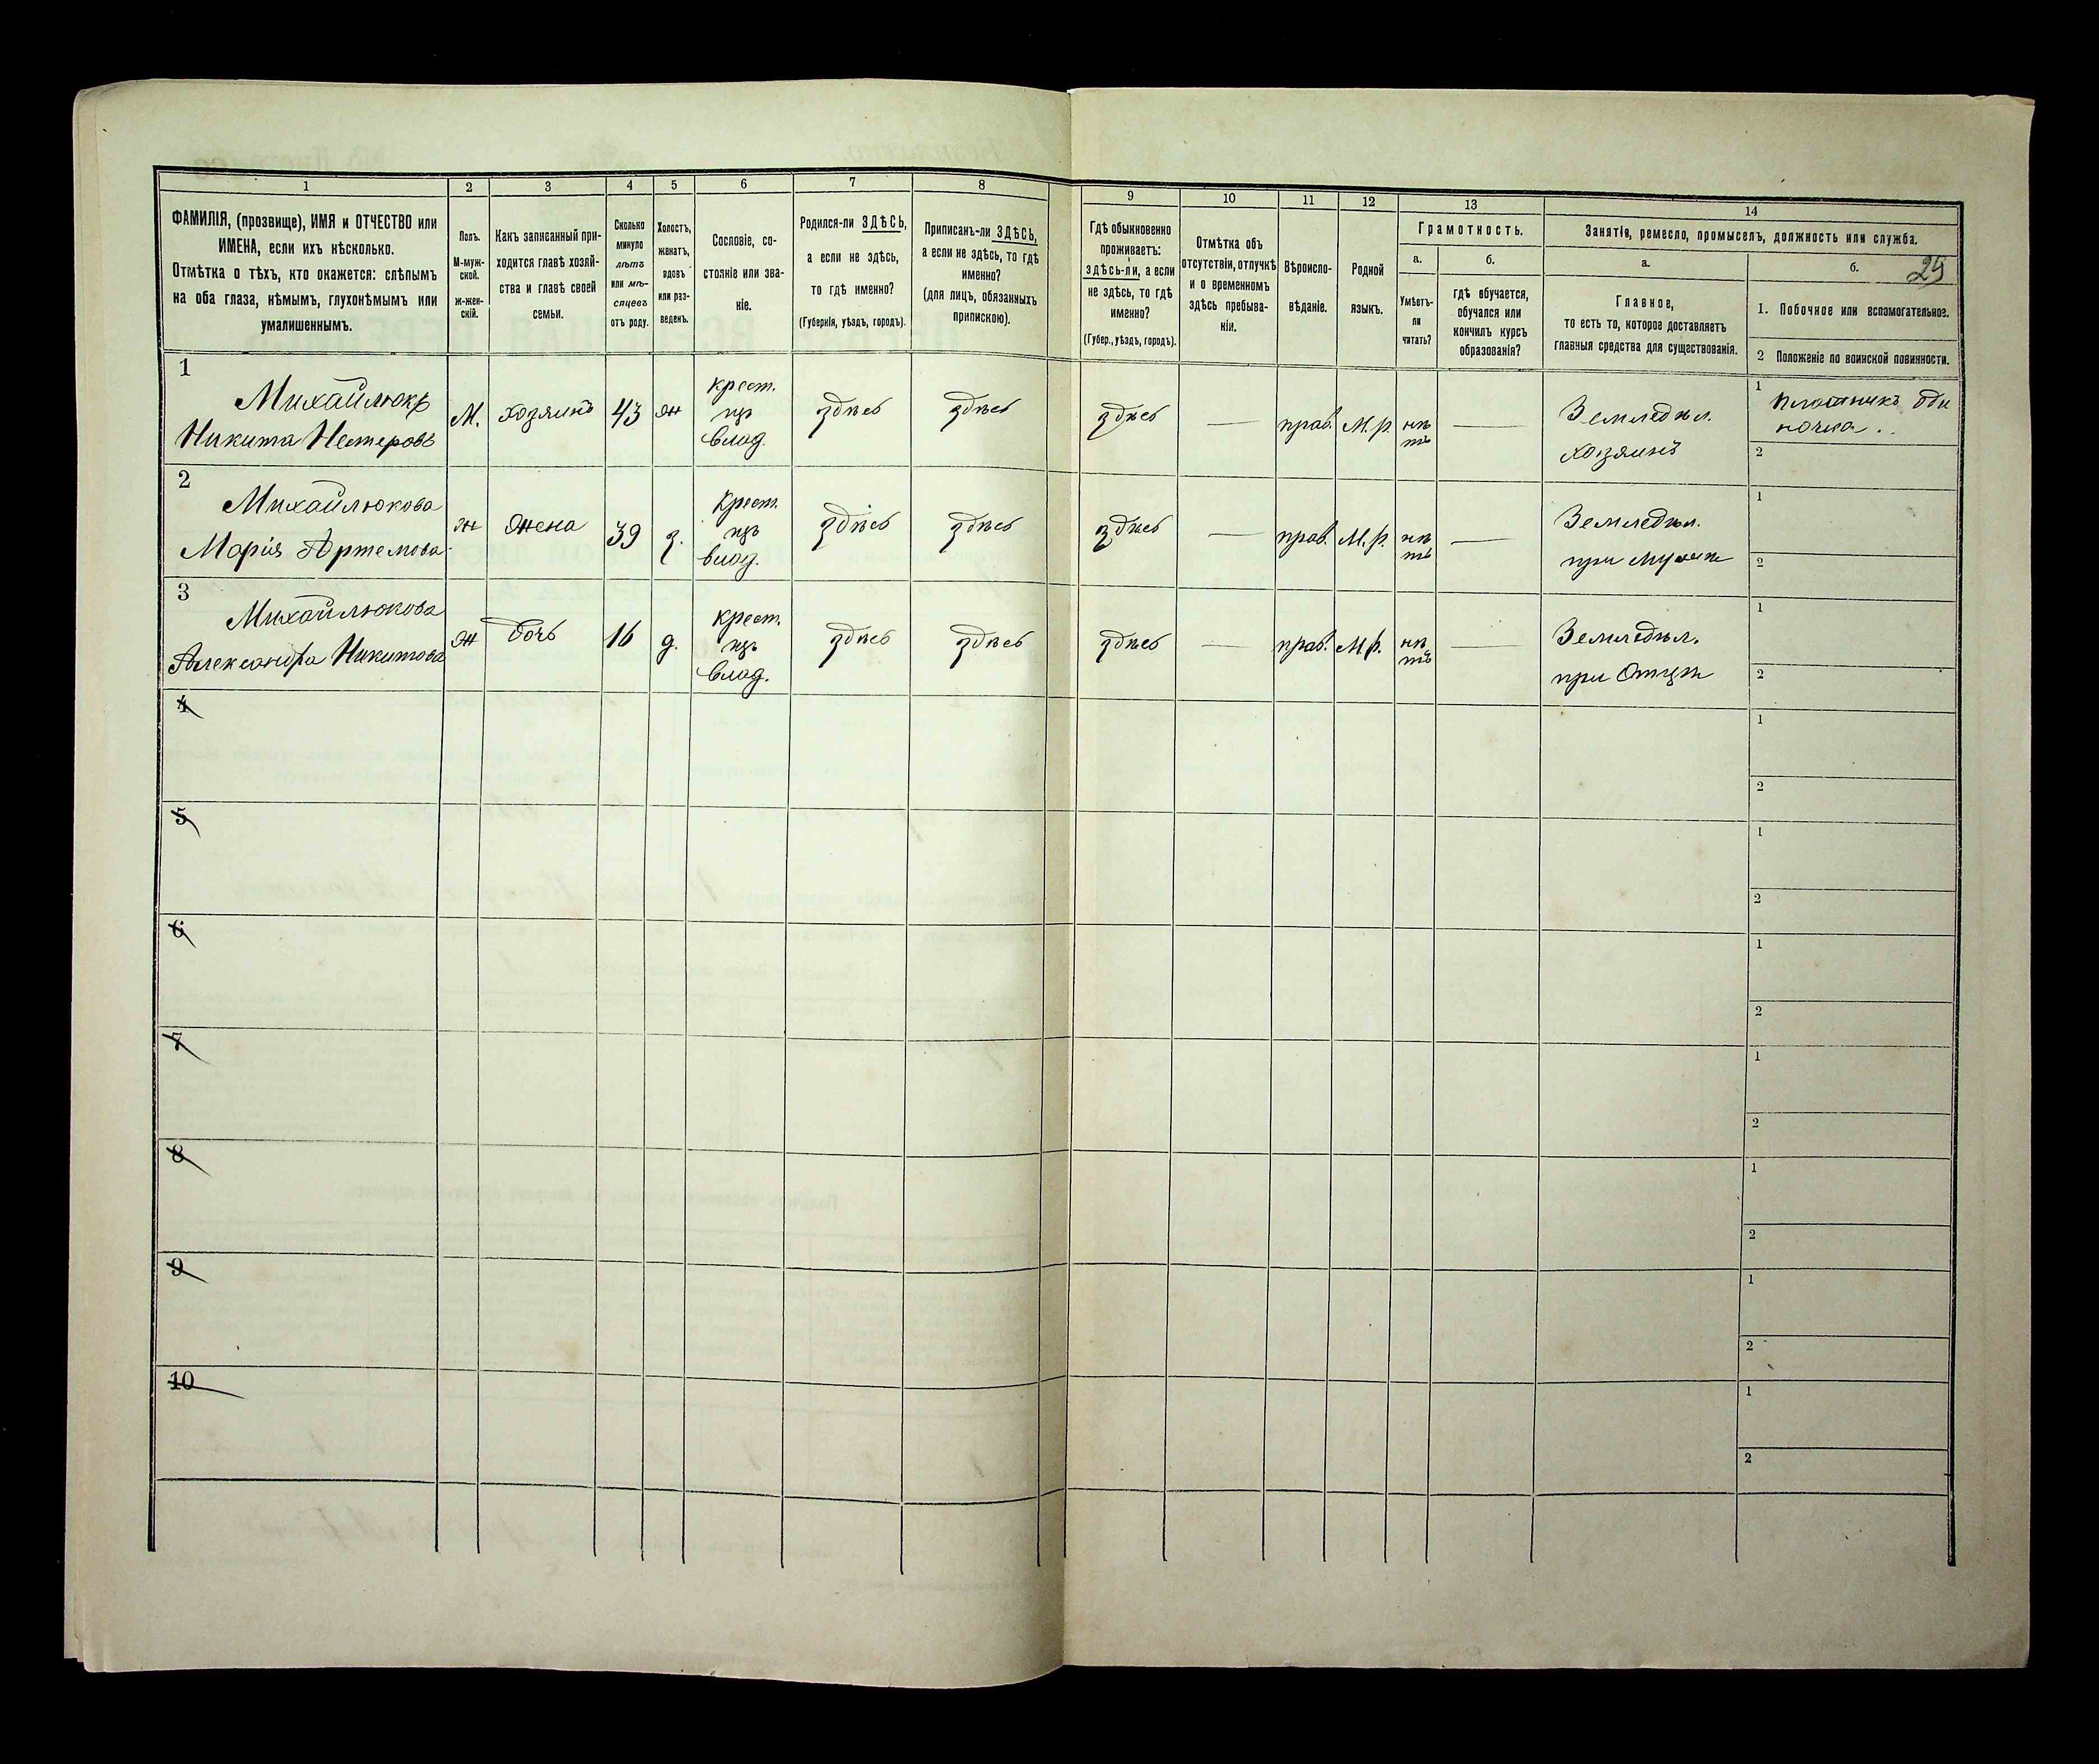 1 2 3 4 5 6 7 8 9 10 11 12 13 14
ФАМИЛІЯ, (прозвище), ИМЯ и ОТЧЕСТВО или
ИМЕНА, если ихъ нѣсколько.
Отмѣтка о тѣхъ, кто окажется: слѣпымъ
на оба глаза, нѣмымъ, глухонѣмымъ или
умалишеннымъ.
Полъ.
М-муж-
ской.
ж-жен-
скій.
Какъ записанный при-
ходится главѣ хозяй-
ства и главѣ своей
семьи.
Сколько
минуло
лѣтъ
или мѣ-
сяцевъ
отъ роду.
Холостъ,
женатъ,
вдовъ
или раз-
веденъ.
Сословіе, со-
стояніе или зва-
ніе.
Родился-ли ЗДѢСЬ,
а если не здѣсь,
то гдѣ именно?
(Губернія, уѣздъ, городъ).
Приписанъ-ли ЗДѢСЬ,
а если не здѣсь, то гдѣ
именно?
(для лицъ, обязанныхъ
припискою).
Гдѣ обыкновенно
проживаетъ:
здѣсь-ли, а если
не здѣсь, то гдѣ
именно?
(Губер., уѣздъ, городъ).
Отмѣтка объ
отсутствіи, отлучкѣ
и о временномъ
здѣсь пребыва-
ніи.
Вѣроиспо-
вѣданіе.
Родной
языкъ.
Грамотность.
а.
Умѣетъ-
ли
читать?
б.
гдѣ обучается,
обучался или
кончилъ курсъ
образованія?
Занятія, ремесло, промыселъ, должность или служба.
а.
Главное,
то есть то, которое доставляетъ
главныя средства для существованія.
б. 29
1. Побочное или вспомогательное.
2 Положеніе по воинской повинности.
1
Михайлюкъ
Никита Нестеровъ
М.
хозяинъ
43
ж
крест.
изъ
влад.
здѣсь
здѣсь
здѣсь
—
прав.
М.р.
нѣ
тъ
—
Земледѣл.
хозяинъ
1 Плотникъ оди
ночка.
2
2
Михайлюкова
Марія Артемова
ж
жена
39
з.
крест.
изъ
влад.
здѣсь
здѣсь
здѣсь
—
прав.
М.р.
нѣ
тъ
—
Земледѣл.
при мужѣ
1
2
3
Михайлюкова
Александра Никитова
ж
дочь
16
д.
крест.
изъ
влад.
здѣсь
здѣсь
здѣсь
—
прав.
М.р.
нѣ
тъ
—
Земледѣл.
при Отцѣ
1
2
4
1
2
5
1
2
6
1
2
7
1
2
8
1
2
9
1
2
10
1
2